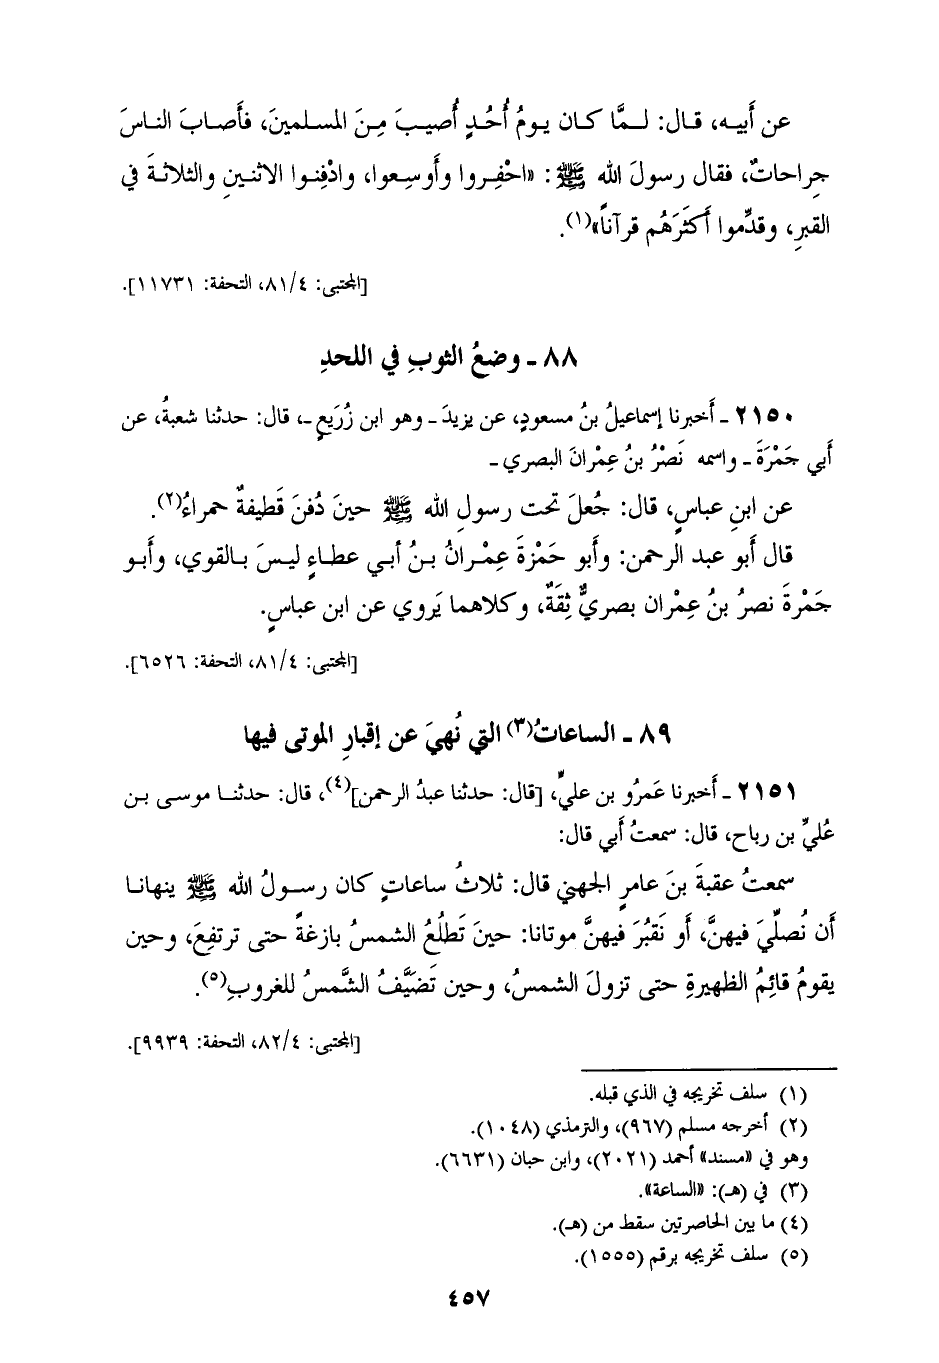 عن أَبيـه، قـال: لـمَّا كـان يـومُ أُحُـدٍ أُصيـبَ مِـنَ المسـلمينَ، فـأَصـابَ النـاسَ
جِراحاتٌ، فقال رسولُ الله ﷺ: «احْفِـروا وأَوسِـعوا، وادْفِنـوا الاثنـينِ والثلاثـةَ في
القبرِ، وقدِّموا أَكثَرَهُم قرآناً»(١).
[المجتبى: ٨١/٤، التحفة: ١١٧٣١].
٨٨ ـ وضعُ الثوبِ في اللحدِ
٢١٥٠ ـ أَخبرنا إسماعيلُ بنُ مسعودٍ، عن يزيدَ ـ وهو ابن زُرَيعٍ ـ، قال: حدثنا شعبةُ، عن
أبي جَمْرَةَ ـ واسمه نَصْرُ بنُ عِمْرانَ البصري ـ
عن ابنِ عباسٍ، قال: جُعلَ تحت رسولِ الله ﷺ حينَ دُفنَ قَطيفةٌ حمراءُ(٢).
قال أَبو عبد الرحمن: وأَبو حَمْزةَ عِمْـرانُ بـنُ أبـي عطـاءٍ ليـسَ بـالقوي، وأَبـو
جَمْرةَ نصرُ بنُ عِمْران بصريٌّ ثِقَةٌ، وكلاهما يَروي عن ابن عباسٍ.
[المجتبى: ٨١/٤، التحفة: ٦٥٢٦].
٨٩ ـ الساعاتُ(٣) التي نُهيَ عن إقبارِ الموتى فيها
٢١٥١ ـ أَخبرنا عَمرُو بن عليٍّ، [قال: حدثنا عبدُ الرحمن](٤)، قال: حدثنـا موسـى بـن
عُليِّ بن رباح، قال: سمعتُ أَبي قال:
سمعتُ عقبةَ بنَ عامرٍ الجهني قال: ثلاثُ ساعاتٍ كان رسـولُ الله ﷺ ينهانـا
أَن نُصلِّيَ فيهنَّ، أَو نَقبُرَ فيهنَّ موتانا: حينَ تَطلُعُ الشمسُ بازغةً حتى ترتفِعَ، وحين
يقومُ قائِمُ الظهيرةِ حتى تزولَ الشمسُ، وحين تَضيَّفُ الشَّمسُ للغروبِ(٥).
[المجتبى: ٨٢/٤، التحفة: ٩٩٣٩].
(١) سلف تخريجه في الذي قبله.
(٢) أخرجه مسلم (٩٦٧)، والترمذي (١٠٤٨).
وهو في «مسند» أحمد (٢٠٢١)، وابن حبان (٦٦٣١).
(٣) في (هـ): «الساعة».
(٤) ما بين الحاصرتين سقط من (هـ).
(٥) سلف تخريجه برقم (١٥٥٥).
٤٥٧